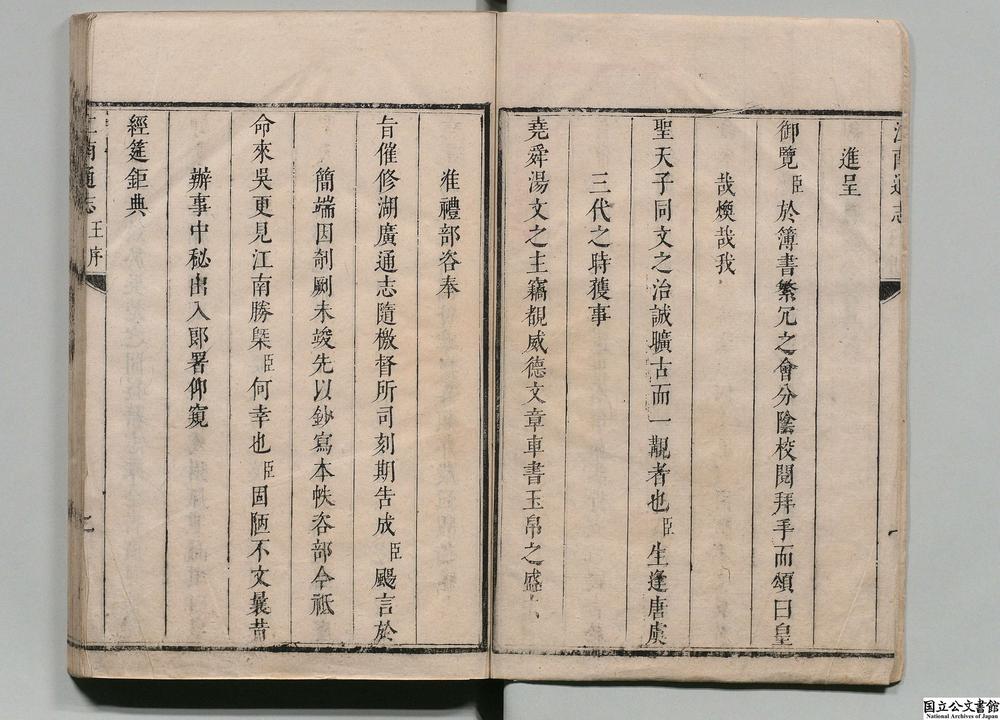 江南通志
進呈
御覽臣於簿書繁冗之會分陰校閱拜手而頌曰皇
哉煥哉我
聖天子同文之治誠曠古而一覯者也臣生逢唐虞
三代之時獲事
堯舜湯文之主竊覩威德文章車書玉帛之盛
准禮部咨奉
旨催修湖廣通志隨檄督所司刻期告成臣颺言於
簡端因剞劂未竣先以鈔寫本帙咨部今祗
命來吳更見江南勝槩臣何幸也臣固陋不文曩昔
辦事中秘出入郎署仰窺
經筵鉅典
江南通志 王序
二
国立公文書館
National Archives of Japan